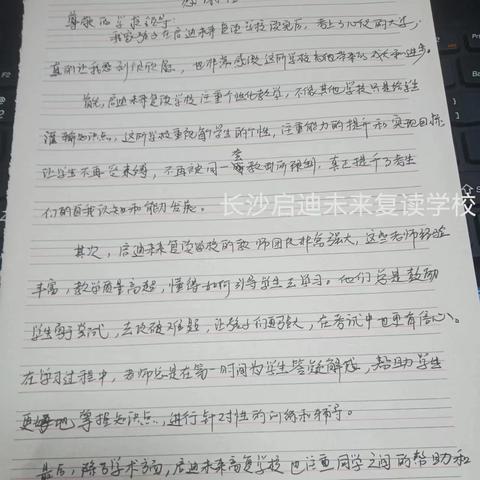 尊敬的学校领导:
我家孩子在启迪未来复读学校读完后,考上了心仪的大学,
真的让我感到很欣慰,也非常感激这所学校给他带来的成长和进步。
首先,启迪未来复读学校注重个性化教学,不像其他学校只是给学生
灌输知识点,这所学校重视每个学生的个性,注重能力的提升和实现目标
让学生不再受束缚,不再被同一套教割所限制,真正提升了考生
们的自我认知和能力发展。
长沙启迪未来复读学校
其次,启迪未来复读学校的教师团队非常强大,这些老师经验
丰富,教学质量高超,懂得如何引导学生去学习。他们总是鼓励
学生勇于尝试,去攻破难题,让孩子们更强大,在考试中也更有信心。
在学习过程中,老师总是在第一时间为学生答疑解惑,帮助学生
更好地掌握知识点,进行针对性的训练和辅导。
最后,除了学术方面,启迪未来高复学校也注重同学之间的帮助和